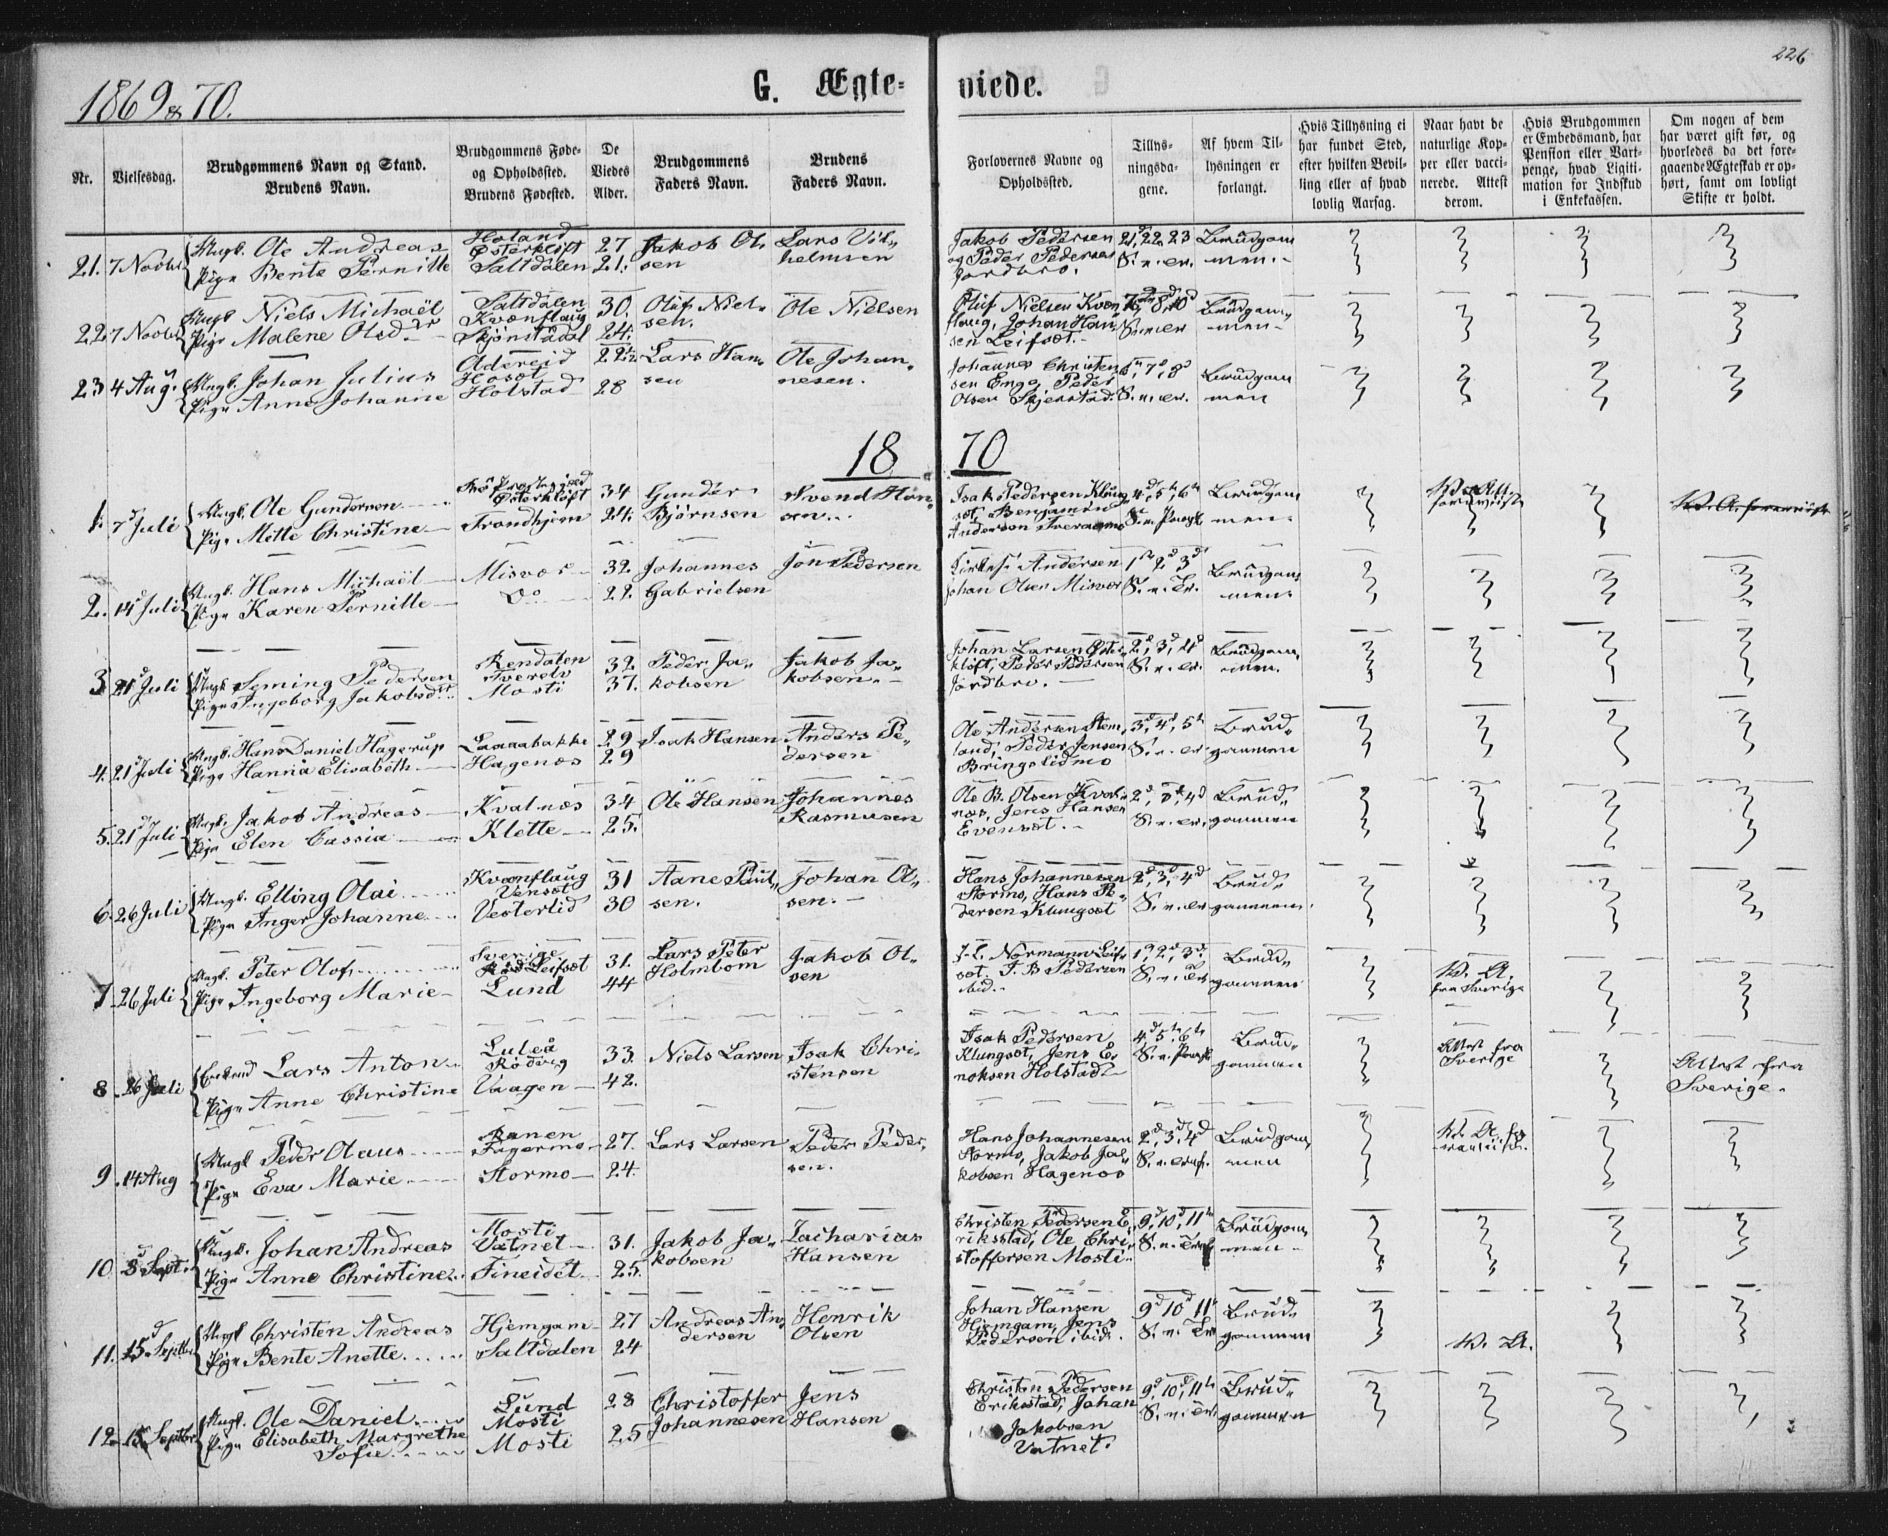 226
1869 & 70.
G. Ægte- viede.
Nr.
Vielsesdag.
Brudgommens Navn og Stand.
Brudens Navn.
Brudgommens Føde-
og Opholdssted.
Brudens Fødested.
De
Viedes
Alder.
Brudgommens
Faders Navn.
Brudens
Faders Navn.
Forlovernes Navne og
Opholdssted.
Tillys-
ningsda-
gene.
Af hvem Til-
lysningen er
forlangt.
Hvis Tillysning ei
har fundet Sted,
efter hvilken Bevil-
ling eller af hvad
lovlig Aarsag.
Naar havt de
naturlige Kop-
per eller vacci-
nerede. Attest
derom.
Hvis Brudgommen
er Embedsmand, har
Pension eller Vart-
penge, hvad Ligiti-
mation for Indskud
i Enkekassen.
Om nogen af dem
har været gift før, og
hvorledes da det fore-
gaaende Ægteskab er op-
hørt, samt om lovligt
Skifte er holdt.
21. 7 Novbr
Ungk. Ole Andreas
Pige Bente Pernille
Østerkløft
Saltdalen
27
21.
Jakob Ol-
sen
Lars Vil-
helmsen
Jakob Pedersen
og Peder Pedersen
Jordbro.
21, 22, 23
S. n. er.
Brudgom
men.
22. 7 Novbr
Ungk. Niels Michaël
Pige Malene Olsd.
Saltdalen
Kvænflaug
Skjønstådal
30.
24.
Oluf Niel-
sen.
Ole Nielsen
Oluf Nielsen Kvæn
flaug, Johan Han
sen Leifset.
S. n. er
Brudgom-
men
23 4 Aug.
Ungk. Johan Julius
Pige Anne Johanne
Hoset
Holstad
22
28
Lars Han-
sen
Ole Johan-
nesen.
Johannes Christen
sen Enge, Peder
Olsen Skjerstad.
6, 7, 8
S. n. er.
Brudgom
men
18 70
1. 7 Juli
Ungk. Ole Gundersen
Pige Mette Christine
Østerkløft
Trondhjem
34
24.
Gunder
Bjørnsen
Svend Høn
sen.
Isak Pedersen Klung
set, Benjamin
Andersen
4, 5, 6
Brudgom
men.
2. 14 Juli
Ungk. Hans Michaël
Pige Karen Pernille
Misvær
Do
32.
22.
Johannes
Gabrielsen
Jon Pedersen
Andersen
Johan Olsen Misvær
1 2 3
S. n. Er.
Brudgom
men
3 21 Juli
Ungk Seming Pedersen
Pige Ingeborg Jakobsd.
Rendalen
Tverelv
Mosti
32.
37.
Peder Ja-
kobsen
Jakob Ja-
kobsen.
Johan Larsen Øster
kløft, Peder Pedersen
Jordbro.
2, 3, 4
S. n. er.
Brudgom
men.
4. 21 Juli
Ungk. Hans Daniel Hagerup
Pige Hanna Elisabeth
Hagenæs
29
29
Isak Hansen
Anders Pe-
dersen
Ole Andersen Stem
land, Peder Jensen
Bringslidmo
3, 4, 5
S. n. er
Brud
gommen
5. 21 Juli
Ungk. Jakob Andreas
Pige Elen Cassia
Kvalnæs
Klette
34
25.
Ole Hansen
Johannes
Rasmusen
Ole B. Olsen Kval
næs, Jens Hansen
Evenset.
2, 3, 4
S. n. er.
Brud
gommen
6. 26 Juli
Ungk. Elling Olai
Pige Inger Johanne
Kvænflaug
Venset
Vesterlid
31
30
Aane Paul-
sen.
Johan Ol-
sen.
Hans Johannesen
Stormo, Hans Pe-
dersen Klungset
2, 3, 4
S. n. er
Brud
gommen.
7. 26 Juli
Ungk. Peter Olof
Pige Ingeborg Marie
Sverige
Leifset
Lund
31.
44
Lars Peter
Holmbom
Jakob Ol-
sen
J. L. Normann Leif
set. J. B. Pedersen
ibid.
1, 2, 3
S. n. Er
Brud
gommen
W. A.
fra Sverige
8. 26 Juli
Enkmd Lars Anton
Pige Anne Christine
Luleå
Rødvig
Vaagen
33.
42.
Niels Larsen
Isak Chri-
stensen
Isak Pedersen
Klungset, Jens E-
noksen Holstad
4, 5, 6
Brud
gommen
Attest fra
Sverige
Attest fra
Sverige.
9. 14 Aug
Ungk Peder Olaus
Pige Eva Marie
Ranen
Fagermo
Stormo
27.
24.
Lars Larsen
Peder Peder
sen.
Hans Johannesen
Stormo, Jakob Ja-
kobsen Hagenæs
2, 3, 4
Brudgom
men
10 8 Sept.
Ungk. Johan Andreas
Pige Anne Christine
Mosti
Vatnet
Fineidet
31.
25.
Jakob Ja-
kobsen
Zacharias
Hansen
Christen Pedersen E
riksstad, Ole Chri
stoffersen Mosti
9, 10, 11
Brudgom
men
11. 15 Septbr
Ungk Christen Andreas
Pige Bente Anette
Hjemgam
Saltdalen
27
24
Andreas An
dersen
Henrik
Olsen
Johan Hansen
Hjemgam, Jens
Pedersen ibid.
9 10 11
S. n. Er
Brud
gommen
W. A.
12 15 Septbr
Ungk. Ole Daniel
Pige Elisabeth Margrethe
Sofie
Lund
Mosti
Mosti
28
25
Christoffer
Johannesen
Jens
Hansen
Christen Pedersen
Eriksstad, Johan
Jakobsen
Vatnet.
9, 10, 11
S. n. er.
Brud
gommen